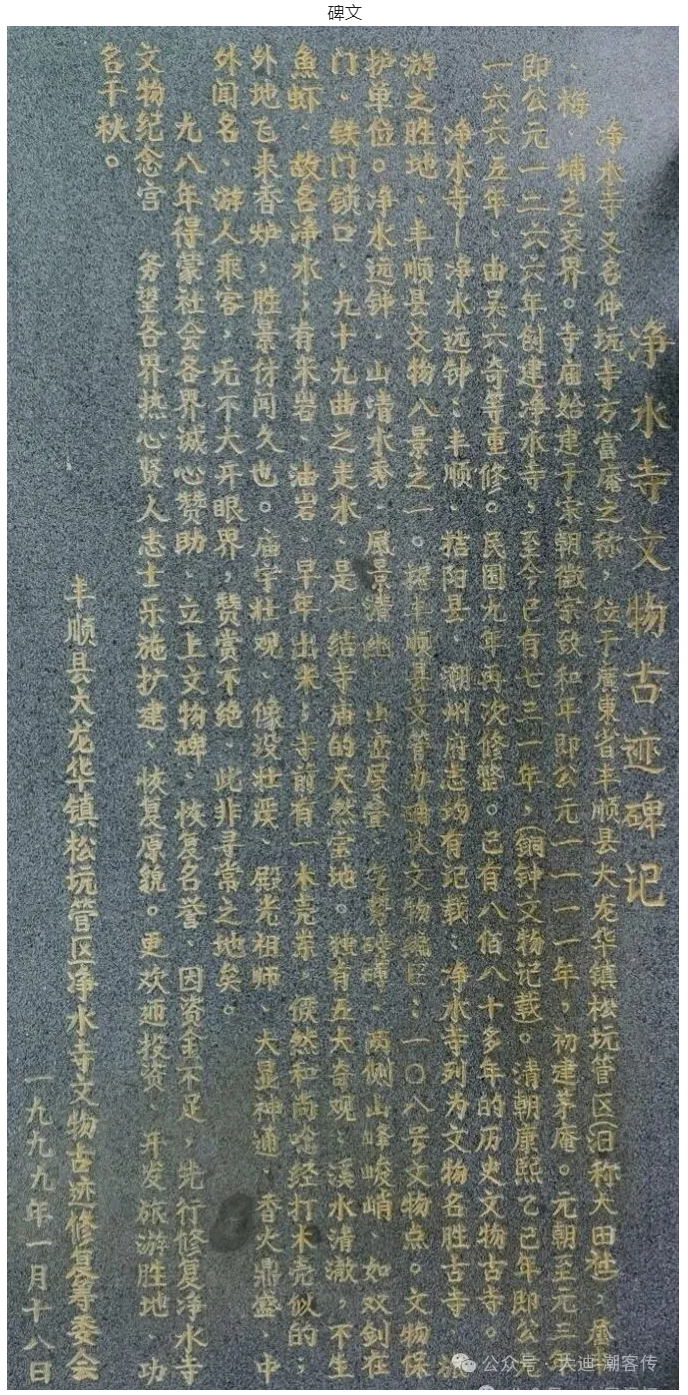 碑文
净水寺文物古迹碑记
净水寺又名仲坑寺方富庵之称，位于廣東省丰顺县大龙华镇松坑管区(旧称大田社，属
、梅、埔之交界。寺庙始建于宋朝徽宗致和年即公元一一一一年，初建茅庵。元朝至元三年
即公元一二六六年创建净水寺，至今已有七三一年，(銅钟文物记载)。清朝康熙乙己年即公元
一六六五年、由吴六奇等重修。民国九年再次修整。已有八佰八十多年的历史文物古寺。
净水寺—净水远钟：丰顺、揩阳县、潮州府志均有记载：净水寺列为文物名胜古寺、旅
游之胜地、丰顺县文物八景之一。据丰顺县文管办确认文物编臣：一〇八号文物点。文物保
护单位。净水远钟、山清水秀、風景清幽、山峦层叠、气势磅礴、两侧山峰峻峭、如双剑在
门、鉄门锁口、九十九曲之走水、是一结寺庙的天然宝地。独有五大奇观：溪水清澈，不生
魚虾、故名净水；有米岩、油岩、早年出米；寺前有一木壳崇、候然和尚唸经打木壳似的；
外地飞来香炉，胜景仿闻久也。庙宇壮观、像设壮严、殿光祖师、大显神通、香火鼎盛、中
外闻名、游人乘客，无不大开眼界，赞赏不绝、此非寻常之地矣。
九八年得蒙社会各界诚心赞助、立上文物碑、恢复名誉、因资金不足，先行修复净水寺
文物纪念宫 务望各界热心贤人志士乐施扩建、恢复原貌。更欢迎投资、开发旅游胜地、功
名千秋。
丰顺县大龙华镇松坑管区净水寺文物古迹修复筹委会
一九九九年一月十八日
公众号·大迪-潮客传